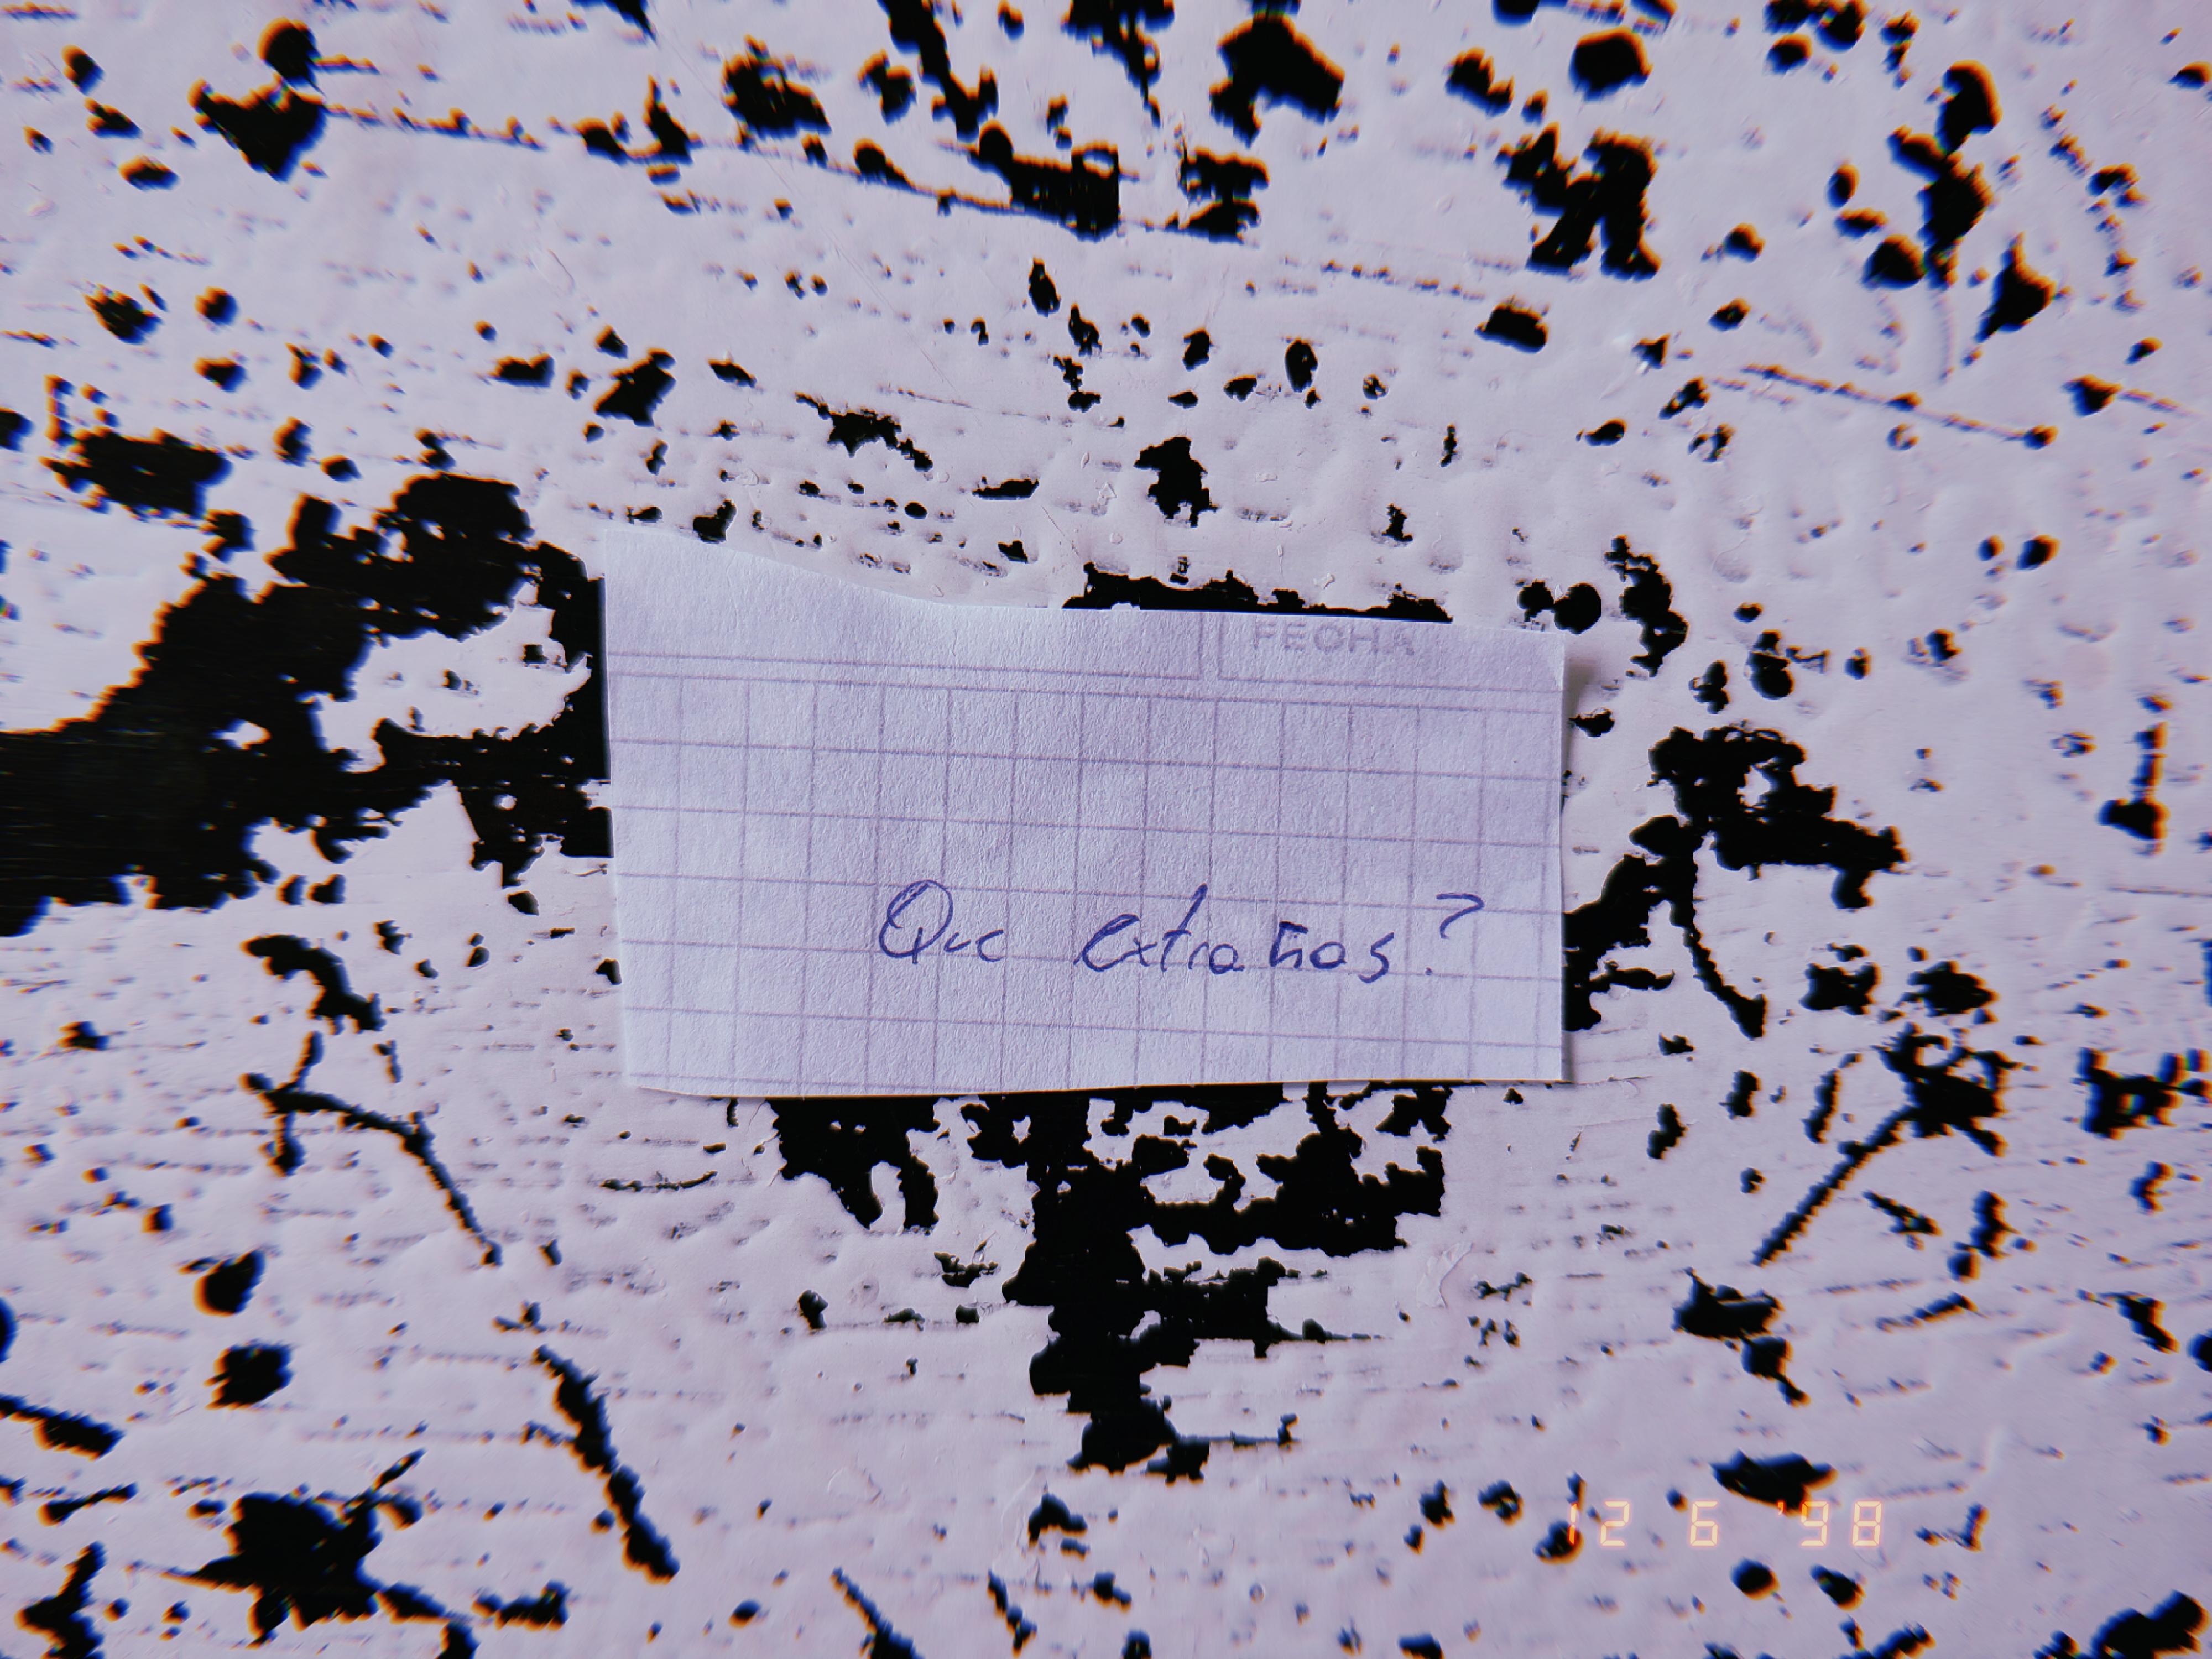 FECHA
Que extrañas?
12 6 '98